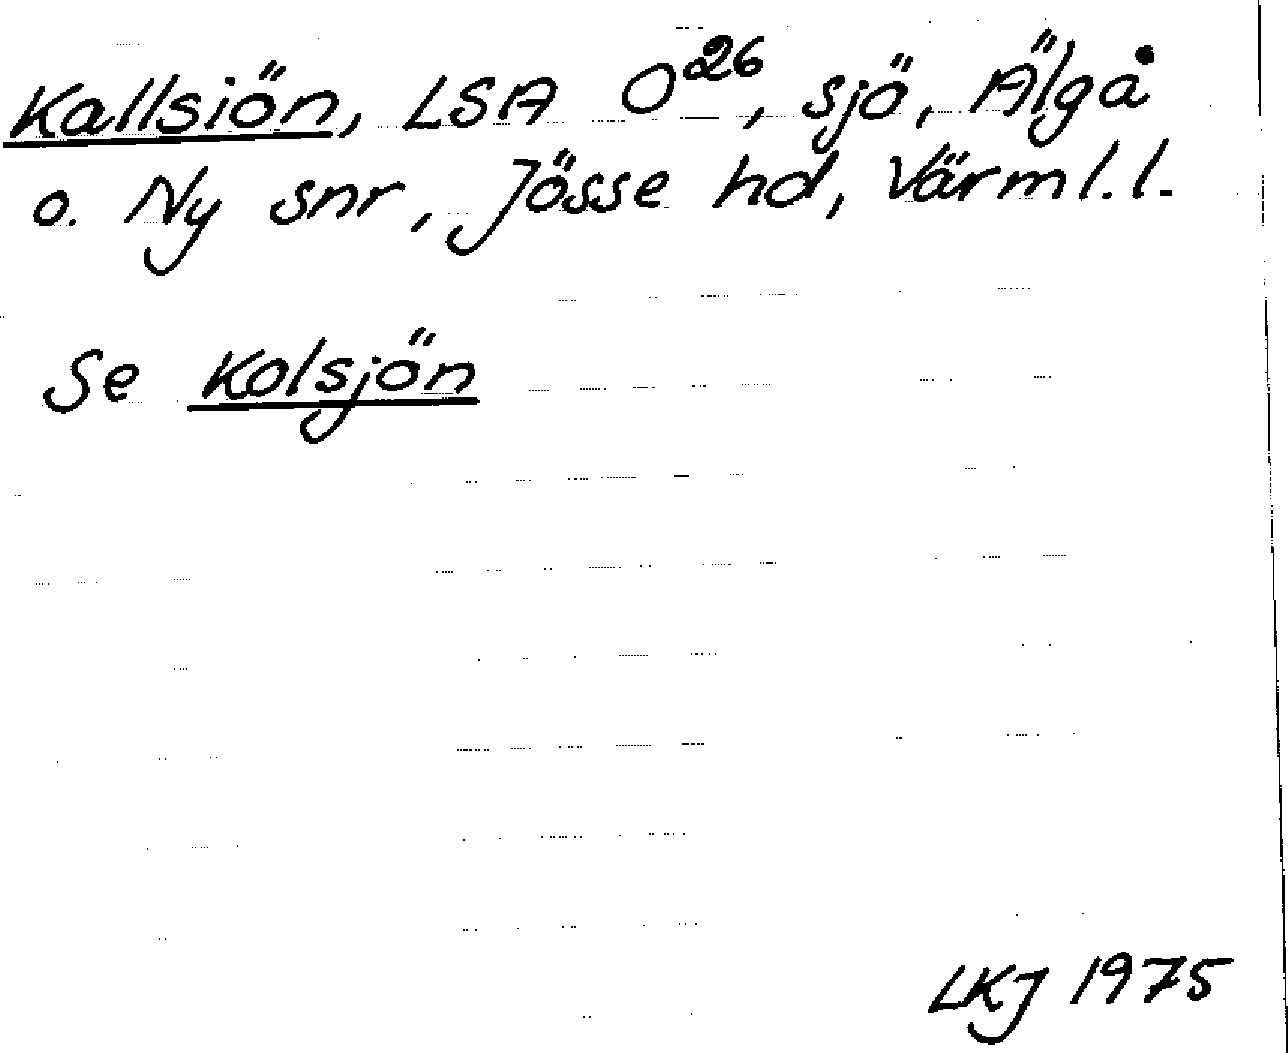 Kallsiön, LSA O26, sjö, Älgå
o. Ny snr, Jösse hd, Värml.l.
Se Kolsjön
LKJ 1975